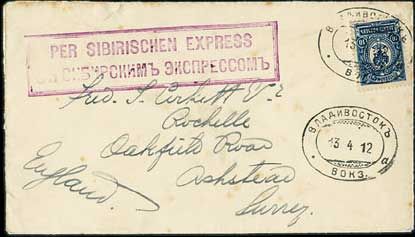 PER SIBIRISCHEN EXPRESS
СИБИРСКИМЪ ЭКСПРЕССОМЪ
ВЛАДИВОСТОКЪ
13
ВОКЗ.
Fred. J. Corbett
Rochelle
Oakfield Road
Ashstead
Surrey
England.
ВЛАДИВОСТОКЪ
13 4 12
а
ВОКЗ.